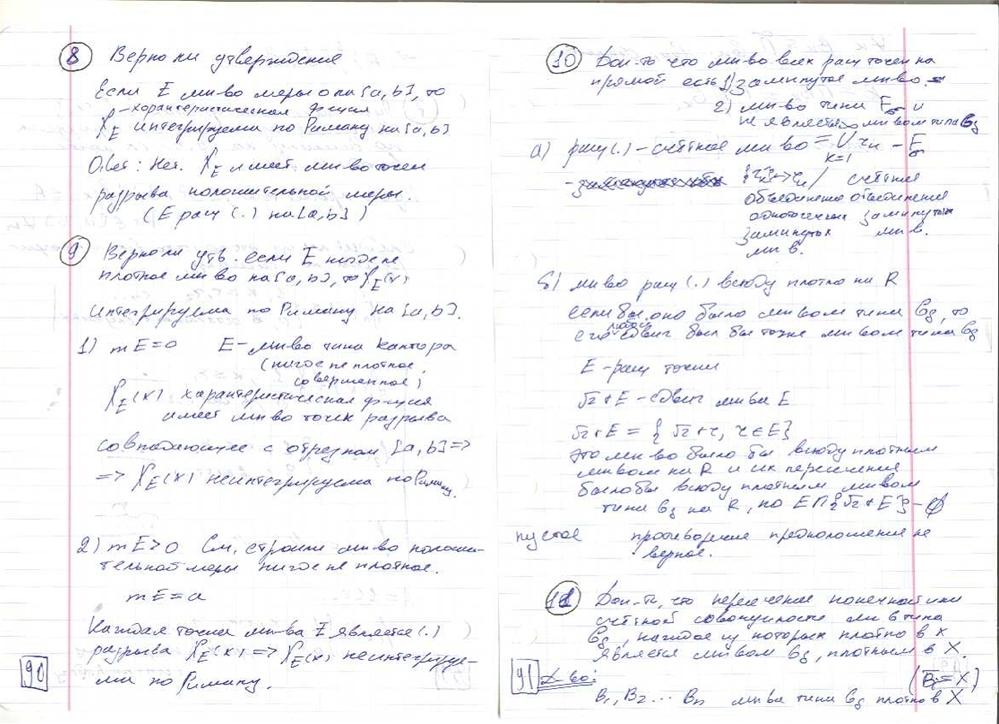 8 Верно ли утверждение
Если E мн-во меры 0 на [a, b], то
характеристическая ф-ция
χ_E интегрируема по Риману на [a, b]
Ответ: Нет. χ_E имеет мн-во точек
разрыва положительной меры.
(E рац (.) на [a, b])
9 Верно ли утв. если E нигде не
плотное мн-во на [a, b], то χ_E(x)
интегрируема по Риману на [a, b].
1) mE=0 E-мн-во типа кантора
(нигде не плотное,
совершенное)
χ_E(x) характеристическая ф-ция
имеет мн-во точек разрыва
совпадающее с отрезком [a, b] =>
=> χ_E(x) неинтегрируема по Риману.
2) mE>0 См. строили мн-во положи-
тельной меры нигде не плотное.
mE=a
Каждая точка мн-ва E является (.)
разрыва χ_E(x) => χ_E(x) неинтегрируе-
ма по Риману.
90
10 Док-ть что мн-во всех рац точек на
прямой есть 1) замкнутое мн-во
2) мн-во типа F_σ и
не является мн-вом типа G_δ
а) рац (.) - счётное мн-во = ∪ r_k - F_σ
k=1
∞
счётное
объединение объединение
одноточечных замкнутых
замкнутых мн-в.
мн-в.
б) мн-во рац (.) всюду плотно на R
если бы оно было мн-вом типа G_δ, то
его сдвиг был бы тоже мн-вом типа G_δ
E - рац точки
√2+E - сдвиг мн-ва E
√2+E = { √2+r, r∈E }
это мн-во было бы всюду плотным
мн-вом на R и их пересечение
было бы всюду плотным мн-вом
типа G_δ на R, но E∩{√2+E} - ∅
пустое противоречие предположение не
верное.
11 Док-ть, что пересечение конечной или
счётной совокупности мн-в типа
G_δ, каждое из которых плотно в X
является мн-вом G_δ, плотным в X.
91 Д-во: (B̄=X)
B₁, B₂ ... Bn мн-ва типа G_δ плотно в X